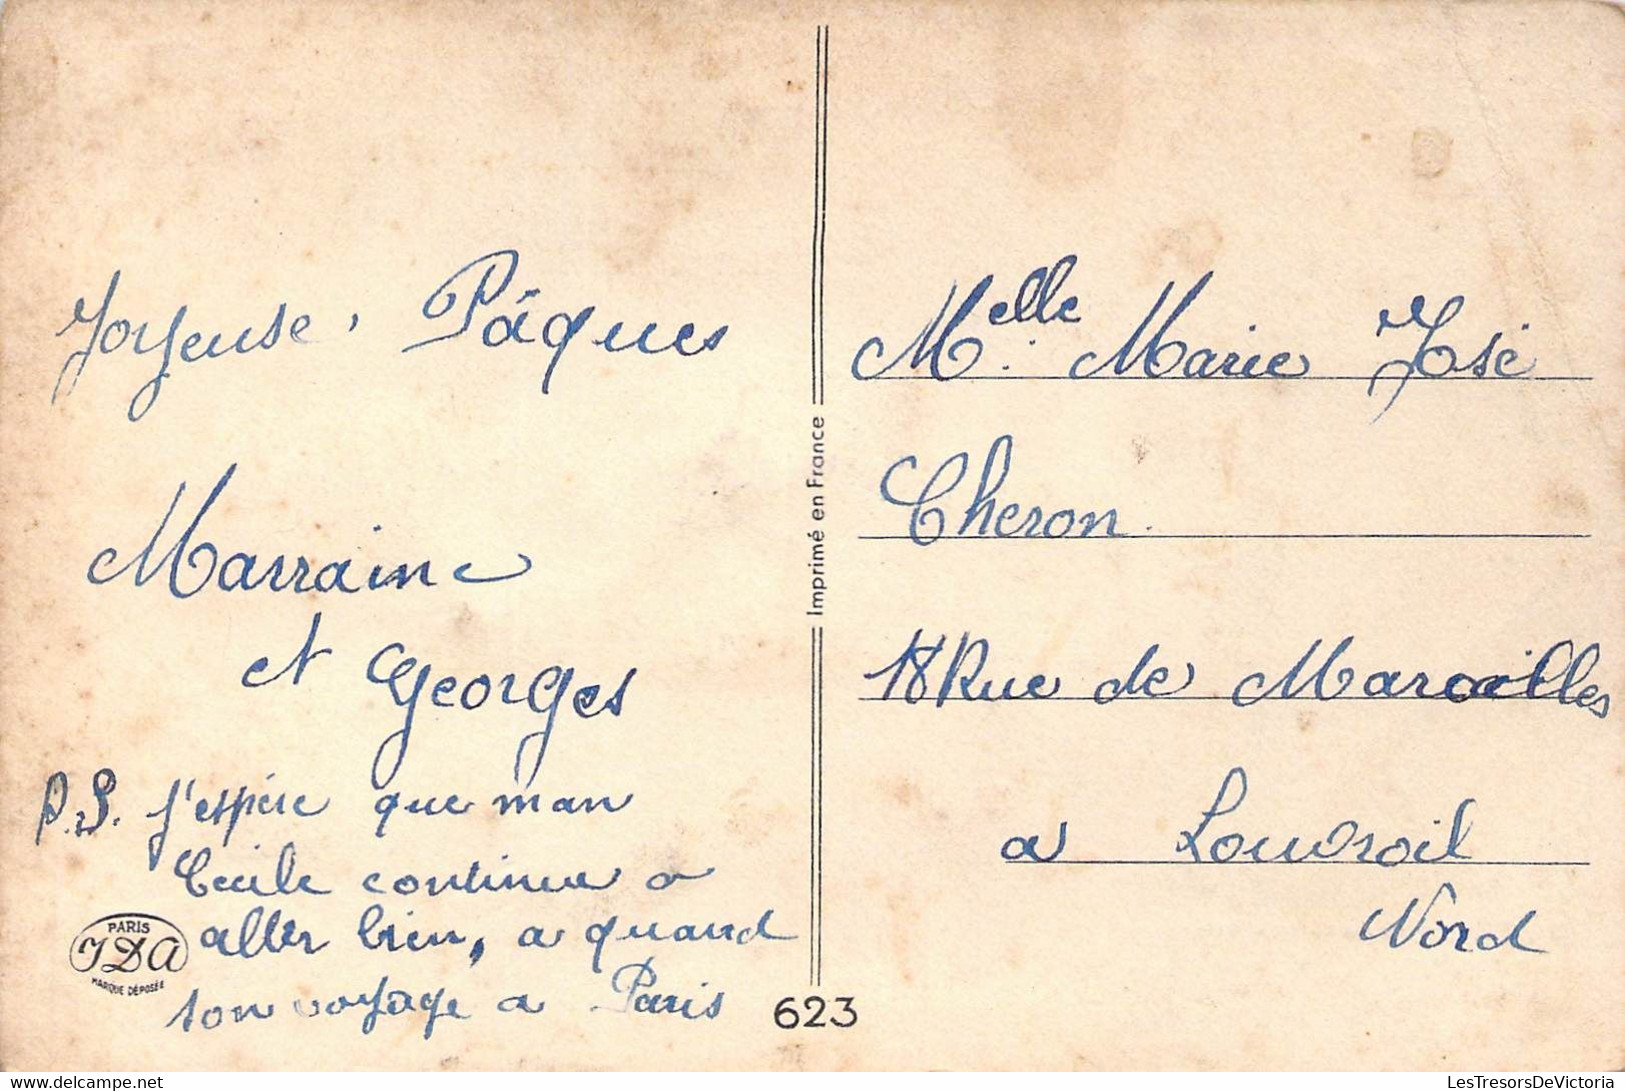 Joyeuse, Pâques
Marraine
et Georges
P.S. J'espère que man
Cécile continue a
aller bien, a quand
ton voyage a Paris
PARIS
JDA
MARQUE DÉPOSÉE
Imprimé en France
623
Melle. Marie José
Cheron.
18 Rue de Maroilles
a Louvroil
Nord
www.delcampe.net
LesTresorsDeVictoria